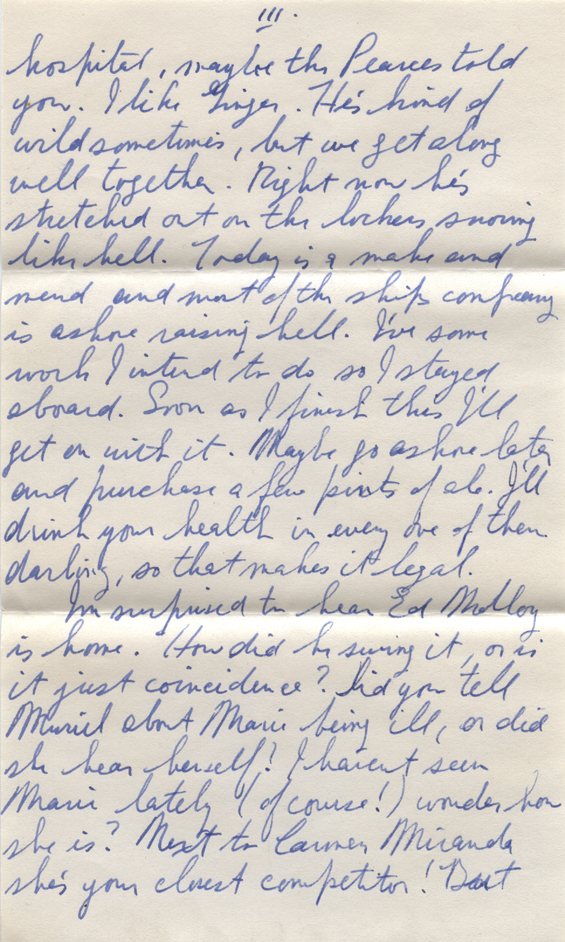 III.
hospital, maybe the Pearces told
you. I like Ginger. He's kind of
wild sometimes, but we get along
well together. Right now he's
stretched out on the lockers snoring
like hell. Today is a make and
mend and most of the ship's company
is ashore raising hell. I've some
work I intend to do so I stayed
aboard. Soon as I finish this I'll
get on with it. Maybe go ashore later
and purchase a few pints of ale. I'll
drink your health in every one of them
darling, so that makes it legal.
I'm surprised to hear Ed Molloy
is home. How did he swing it, or is
it just coincidence? Did you tell
Muriel about Marie being ill, or did
she hear herself? I haven't seen
Marie lately (of course!) wonder how
she is? Next to Carmen Miranda
she's your closest competitor! But